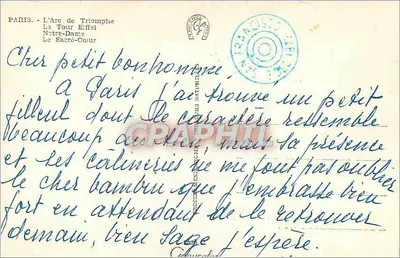 PARIS. - L'Arc de Triomphe
La Tour Eiffel
Notre-Dame
Le Sacré-Cœur
Cher petit bonhomme,
A Paris j'ai trouvé un petit
filleul dont le caractère ressemble
beaucoup au tien, mais sa présence
et ses câlineries ne me font pas oublier
le cher bambin que j'embrasse bien
fort en attendant de le retrouver
demain, bien sage j'espère.
CPAPHIL